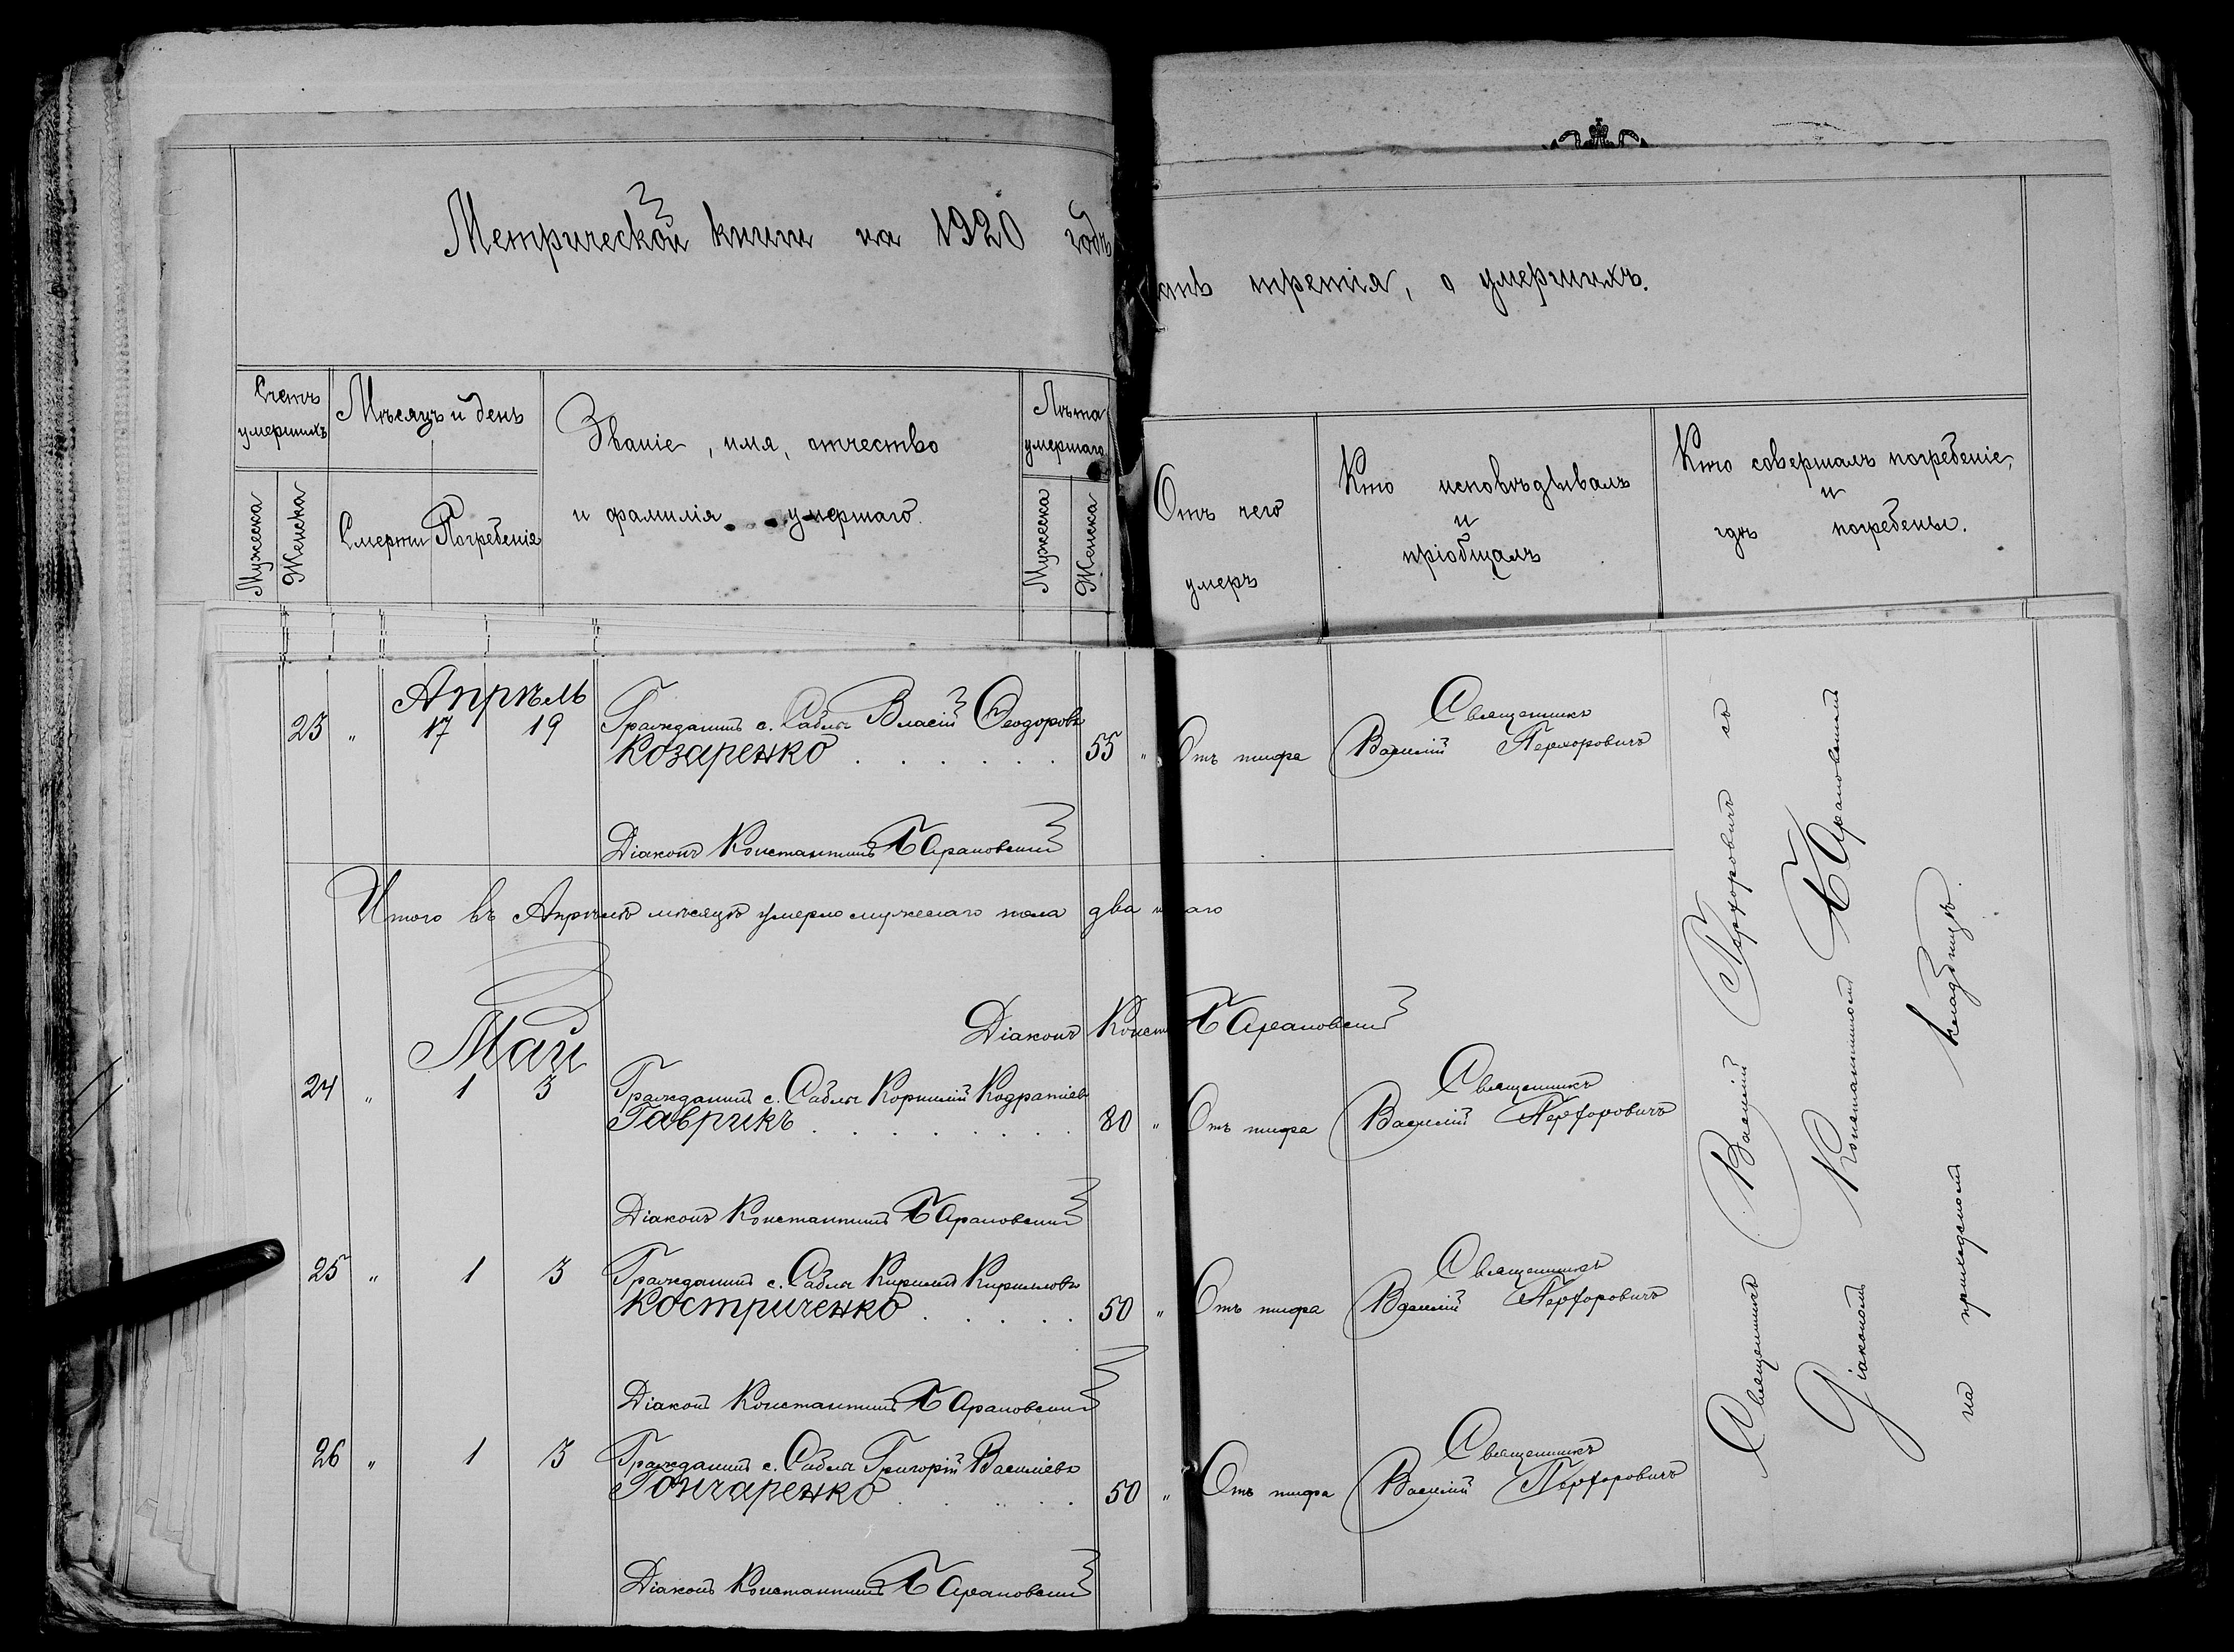 Метрической книги на 1920 годъ
третія, о умершихъ.
Счетъ умершихъ
Мѣсяцъ и день
Званіе, имя, отчество
и фамилія умершаго.
Лѣта умершаго
Мужеска
Женска
Смерти
Погребенія
Мужеска
Женска
Отъ чего
умеръ
Кто исповѣдывалъ
и
пріобщалъ
Кто совершалъ погребеніе,
и
гдѣ погребены.
Апрѣль
23 " 17 19 Гражданинъ с. Сабли Власій Ѳеодоровъ
Козаренко 55 " Отъ тифа
Священникъ
Василій
Діаконъ Константинъ
Итого въ Апрѣлѣ мѣсяцѣ умерло мужескаго пола два
Діаконъ
Май
24 " 1 3 Гражданинъ с. Сабли Корнилій Кодратіевъ
Гаврикъ 80 " Отъ тифа
Священникъ
Василій
Діаконъ Константинъ
25 " 1 3 Гражданинъ с. Сабли Кирилъ Кирилловъ
Костриченко 50 " Отъ тифа
Священникъ
Василій
Діаконъ Константинъ
26 " 1 3 Гражданинъ с. Сабли Григорій Василіевъ
Гончаренко 50 " Отъ тифа
Священникъ
Василій
Діаконъ Константинъ
Священникъ Василій съ
Діакономъ Константиномъ
на приходскомъ кладбищѣ.